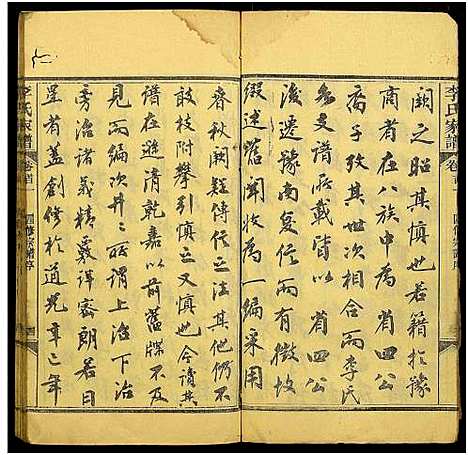 李氏家譜
卷首
四修宗譜序
闕之昭其慎也若籍於豫
商者在八族中為省四公
裔子孜其世次相合而李氏
各支譜所載皆以省四公
後遷豫南復任而有徵故
綴述舊聞收為一編采用
春秋闕疑傳信之法其他仍不
敢枝附攀引慎之又慎也今讀其
譜在遜清乾嘉以前舊牒不及
見而編次井井所謂上治下治
旁治諸義精嚴詳密朗若日
星者蓋創修於道光辛巳年
李氏家譜
卷首
四修宗譜序